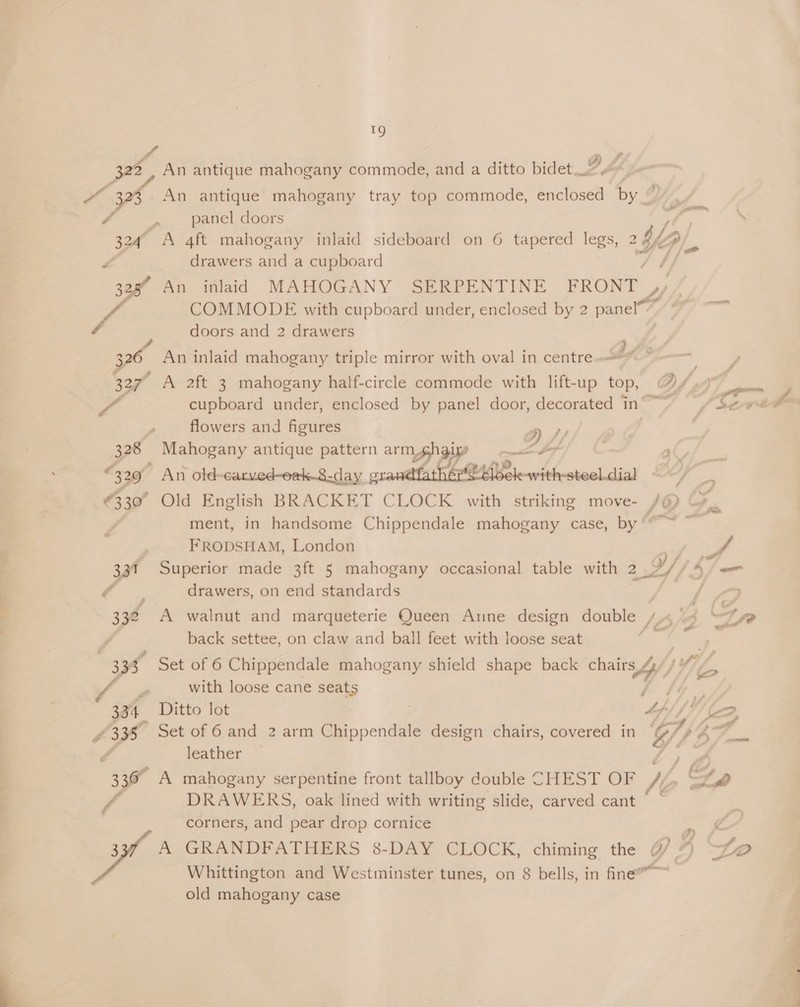 19
322 An antique mahogany commode, and a ditto bidet
323 An antique mahogany tray top commode, enclosed by
panel doors
324 A 4ft mahogany inlaid sideboard on 6 tapered legs, 2
drawers and a cupboard
325 An inlaid MAHOGANY SERPENTINE FRONT
COMMODE with cupboard under, enclosed by 2 panel
doors and 2 drawers
326 An inlaid mahogany triple mirror with oval in centre
327 A 2ft 3 mahogany half-circle commode with lift-up top,
cupboard under, enclosed by panel door, decorated in
flowers and figures
328 Mahogany antique pattern arm chair
329 An old carved oak 8-day grandfather's clock with steel dial
330 Old English BRACKET CLOCK with striking move-
ment, in handsome Chippendale mahogany case, by
FRODSHAM, London
331 Superior made 3ft 5 mahogany occasional table with 2
drawers, on end standards
332 A walnut and marqueterie Queen Anne design double
back settee, on claw and ball feet with loose seat
333 Set of 6 Chippendale mahogany shield shape back chairs
with loose cane seats
334 Ditto lot
335 Set of 6 and 2 arm Chippendale design chairs, covered in
leather
336 A mahogany serpentine front tallboy double CHEST OF
DRAWERS, oak lined with writing slide, carved cant
corners, and pear drop cornice
337 A GRANDFATHERS 8-DAY CLOCK, chiming the
Whittington and Westminster tunes, on 8 bells, in fine
old mahogany case